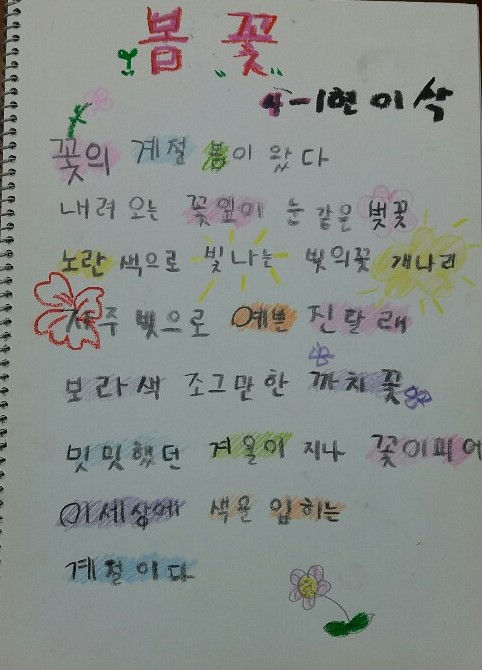 봄 꽃
4-1 현이삭
꽃의 계절 봄이 왔다
내려 오는 꽃잎이 눈 같은 벚꽃
노란 색으로 빛나는 빛의꽃 개나리
자주 빛으로 예쁜 진달래
보라색 조그만한 까치꽃
밋밋했던 겨울이 지나 꽃이피어
이세상에 색을 입히는
계절이다